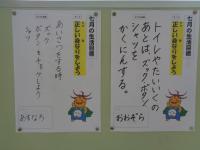 七月の生活目標
正しい身なりをしよう
トイレやたいいくの
あとは、ズック・ボタン
シャツを
かくにんする。
おおぞら
七月の生活目標
正しい身なりをしよう
あいさつをする時
ズック
ボタンをチェックしよう
シャツ
あすなろ